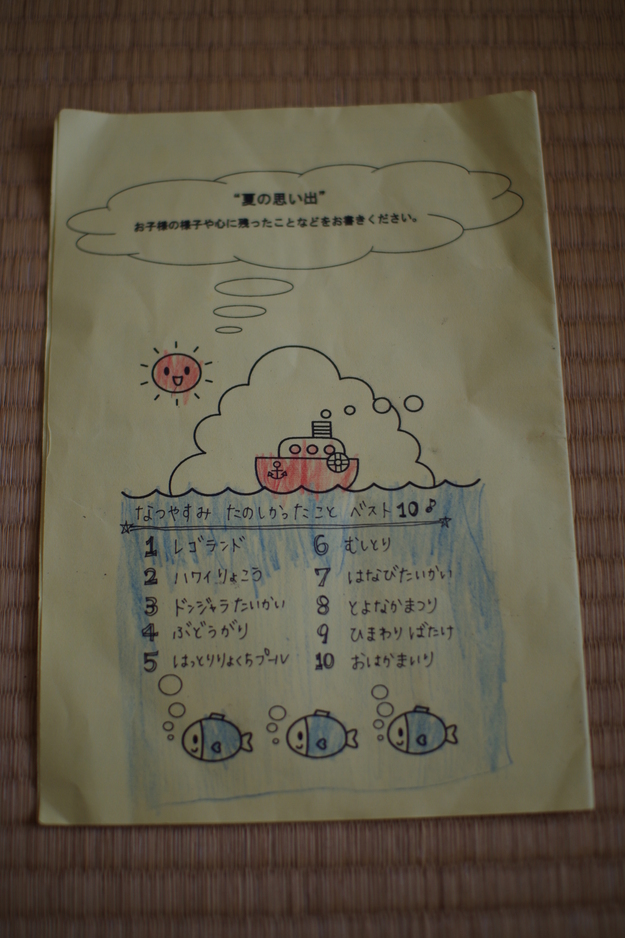 “夏の思い出”
お子様の様子や心に残ったことなどをお書きください。
なつやすみ たのしかったこと ベスト10♪
1 レゴランド
2 ハワイりょこう
3 ドンジャラたいかい
4 ぶどうがり
5 はっとりりょくちプール
6 むしとり
7 はなびたいかい
8 とよなかまつり
9 ひまわりばたけ
10 おはかまいり